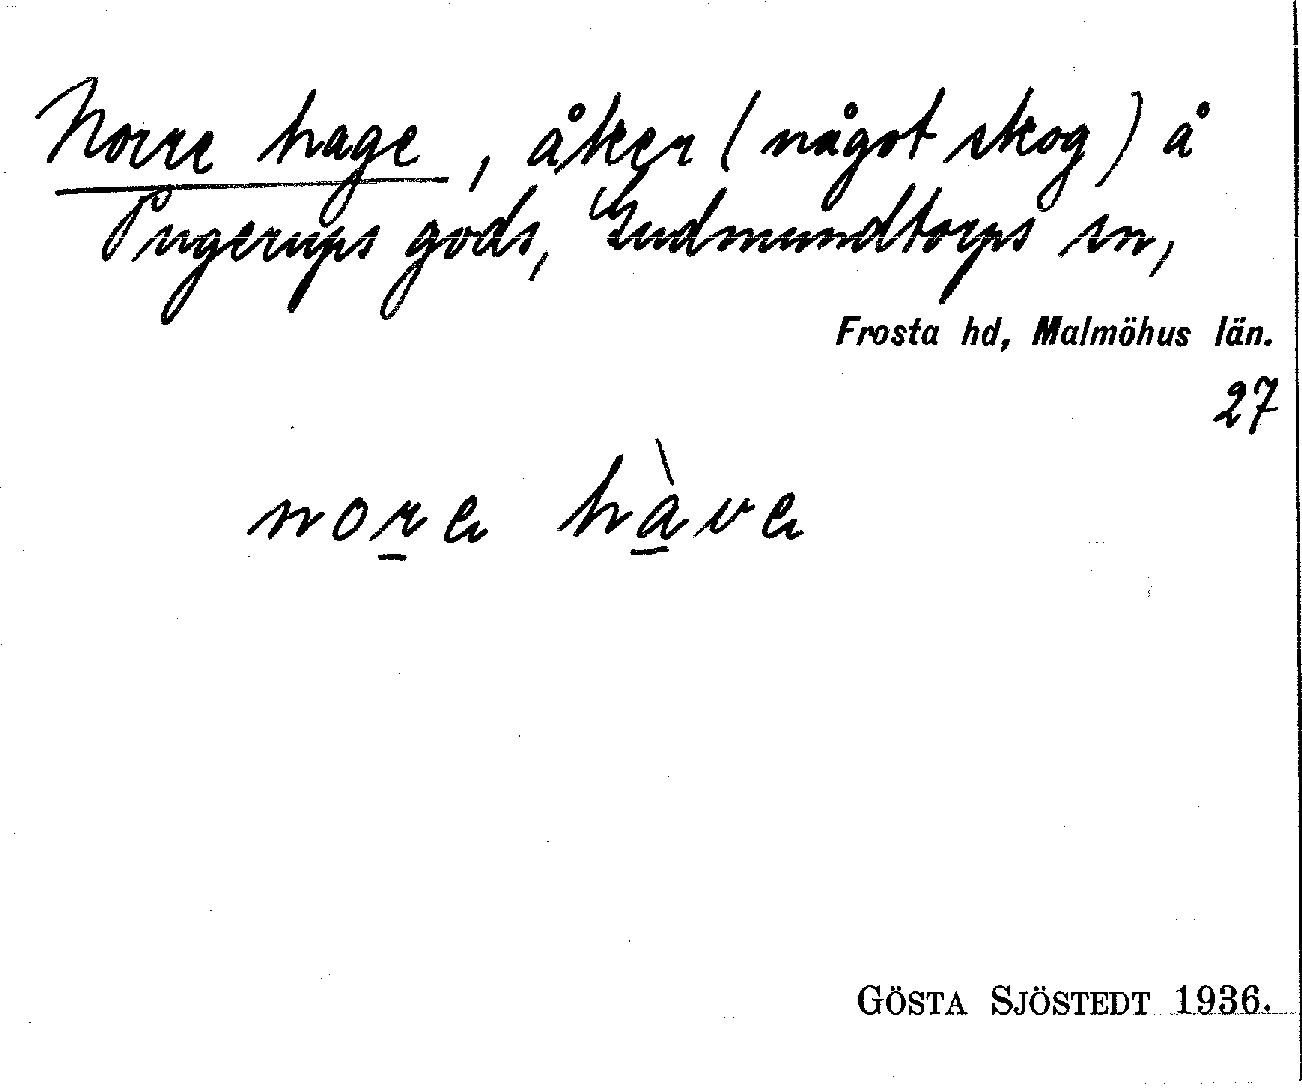 Norre hage, åker (något skog) å
Pugerups gods, Gudmundtorps sn,
Frosta hd, Malmöhus län.
27
nore hàve
GÖSTA SJÖSTEDT 1936.